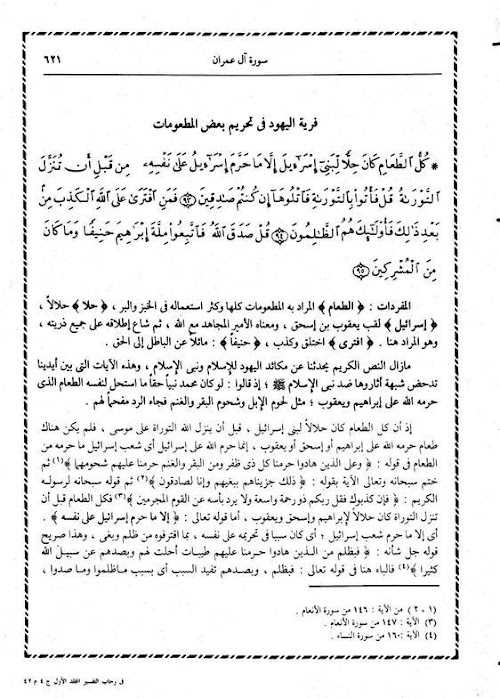 سورة آل عمران
٦٢١
فرية اليهود فى تحريم بعض المطعومات
* كُلُّ الطَّعَامِ كَانَ حِلًّا لِّبَنِي إِسْرَاءِيلَ إِلَّا مَا حَرَّمَ إِسْرَاءِيلُ عَلَىٰ نَفْسِهِ مِن قَبْلِ أَن تُنَزَّلَ
التَّوْرَاةُ قُلْ فَأْتُوا بِالتَّوْرَاةِ فَاتْلُوهَا إِن كُنتُمْ صَادِقِينَ ٩٣ فَمَنِ افْتَرَىٰ عَلَى اللَّهِ الْكَذِبَ مِنْ
بَعْدِ ذَٰلِكَ فَأُولَٰئِكَ هُمُ الظَّالِمُونَ ٩٤ قُلْ صَدَقَ اللَّهُ فَاتَّبِعُوا مِلَّةَ إِبْرَاهِيمَ حَنِيفًا وَمَا كَانَ
مِنَ الْمُشْرِكِينَ ٩٥
المفردات : ﴿ الطعام ﴾ المراد به المطعومات كلها وكثر استعماله فى الخبز والبر ، ﴿ حلا ﴾ حلالاً ،
﴿ إسرائيل ﴾ لقب يعقوب بن إسحق ، ومعناه الأمير المجاهد مع الله ، ثم شاع إطلاقه على جميع ذريته ،
وهو المراد هنا . ﴿ افترى ﴾ اختلق وكذب ، ﴿ حنيفاً ﴾ : مائلاً عن الباطل إلى الحق .
مازال النص الكريم يحدثنا عن مكائد اليهود للإسلام ونبى الإسلام ، وهذه الآيات التى بين أيدينا
تدحض شبهة أثاروها ضد نبى الإسلام ﷺ ؛ إذ قالوا : لو كان محمد نبياً حقاً ما استحل لنفسه الطعام الذى
حرمه الله على إبراهيم ويعقوب ؛ مثل لحوم الإبل وشحوم البقر والغنم فجاء الرد مفحماً لهم .
إذ أن كل الطعام كان حلالاً لبنى إسرائيل ، قبل أن ينزل الله التوراة على موسى ، فلم يكن هناك
طعام حرمه الله على إبراهيم أو إسحق أو يعقوب ، إنما حرم الله على إسرائيل أى شعب إسرائيل ما حرمه من
الطعام فى قوله : ﴿ وعلى الذين هادوا حرمنا كل ذى ظفر ومن البقر والغنم حرمنا عليهم شحومهما ﴾(١) ثم
ختم سبحانه وتعالى الآية بقوله : ﴿ ذلك جزيناهم ببغيهم وإنا لصادقون ﴾(٢) ثم قوله سبحانه لرسوله
الكريم : ﴿ فإن كذبوك فقل ربكم ذو رحمة واسعة ولا يرد بأسه عن القوم المجرمين ﴾(٣) فكل الطعام قبل أن
تنزل التوراة كان حلالاً لإبراهيم وإسحق ويعقوب ، أما قوله تعالى : ﴿ إلا ما حرم إسرائيل على نفسه ﴾ .
أى إلا ما حرم شعب إسرائيل ؛ أى كان سببا فى تحريمه على نفسه ، بما اقترفوه من ظلم وبغى ، وهذا صريح
قوله جل شأنه : ﴿ فبظلم من الذين هادوا حرمنا عليهم طيبات أحلت لهم وبصدهم عن سبيل الله
كثيرا ﴾(٤) فالباء هنا فى قوله تعالى : فبظلم ، وبصدهم تفيد السبب أى بسبب ما ظلموا وما صدوا ،
(١ ، ٢) من الآية : ١٤٦ من سورة الأنعام .
(٣) الآية : ١٤٧ من سورة الأنعام .
(٤) الآية : ١٦٠ من سورة النساء .
فى رحاب التفسير المجلد الأول ج ٤ م ٤٢